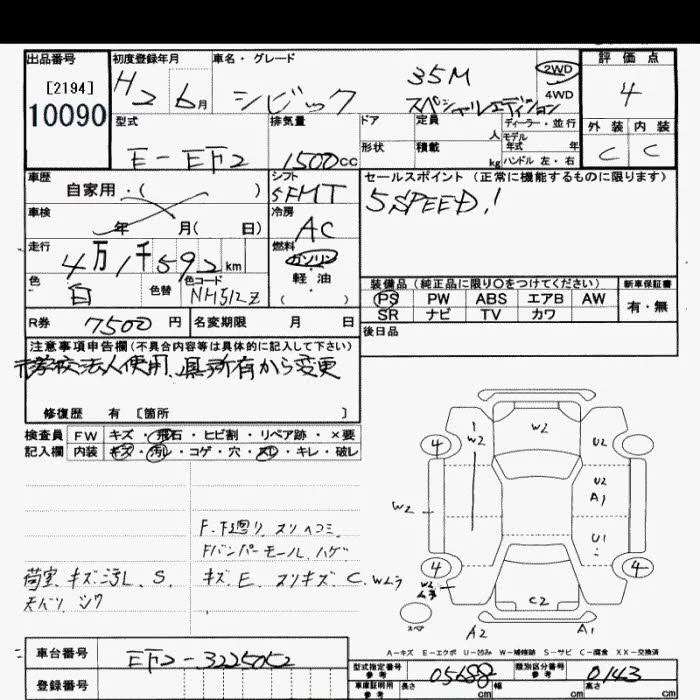 出品番号
[2194]
10090
初度登録年月
H2 6月
車名・グレード
シビック
35M
スペシャルエディション
2WD
4WD
評価点
4
外装 内装
C C
型式
E-EF2
排気量
1500cc
ドア
形状
定員
人
積載
kg
ディーラー・並行
モデル
年式 年
ハンドル 左・右
車歴
自家用・( )
シフト
5FMT
セールスポイント(正常に機能するものに限ります)
5SPEED!
車検
年 月( 日)
冷房
AC
走行
4万1千592km
燃料
ガソリン
・
軽油
( )
色
白
色替
色コード
NH512Z
装備品(純正品に限り○をつけてください)
PS PW ABS エアB AW
SR ナビ TV カワ
新車保証書
有・無
R券 7500円
名変期限 月 日
後日品
注意事項申告欄(不具合内容等は具体的に記入して下さい)
学校法人使用、県所有から変更
修復歴 有 [箇所 ]
検査員 FW キズ・飛石・ヒビ割・リペア跡・×要
記入欄 内装 キズ・汚レ・コゲ・穴・スレ・キレ・破レ
F.下廻り、スリヘコミ
Fバンパーモール、ハゲ
荷室、キズ汚レ、S、 キズ、E、スリキズ C、Wムラ
天バリ シワ
1
W2
W2
U2
4
U2
A1
W2
U1
4
4
W2
ムラ
C2
スペア
A2
A1
A-キズ E-エクボ U-凹み W-補修跡 S-サビ C-腐食 XX-交換済
車台番号
EF2-3225052
登録番号
型式指定番号
参考
05688
類別区分番号
参考
0143
車庫証明用
参考
長さ cm 幅 cm 高さ cm